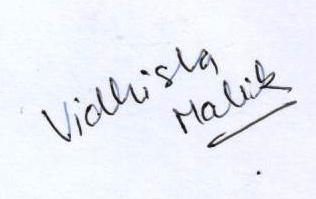 Vidhisha
Malik